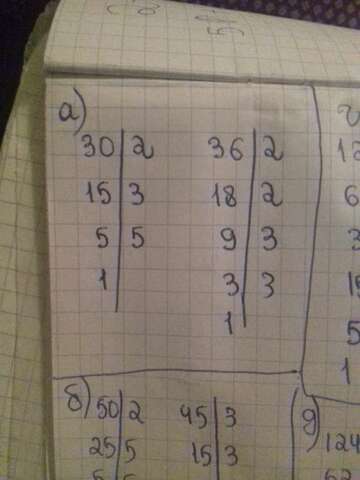 а)
30 | 2 36 | 2
15 | 3 18 | 2
5 | 5 9 | 3
1 3 | 3
1
б) 50 | 2 45 | 3
25 | 5 15 | 3
5 | 5
12
6
3
15
5
1
д)
124
62